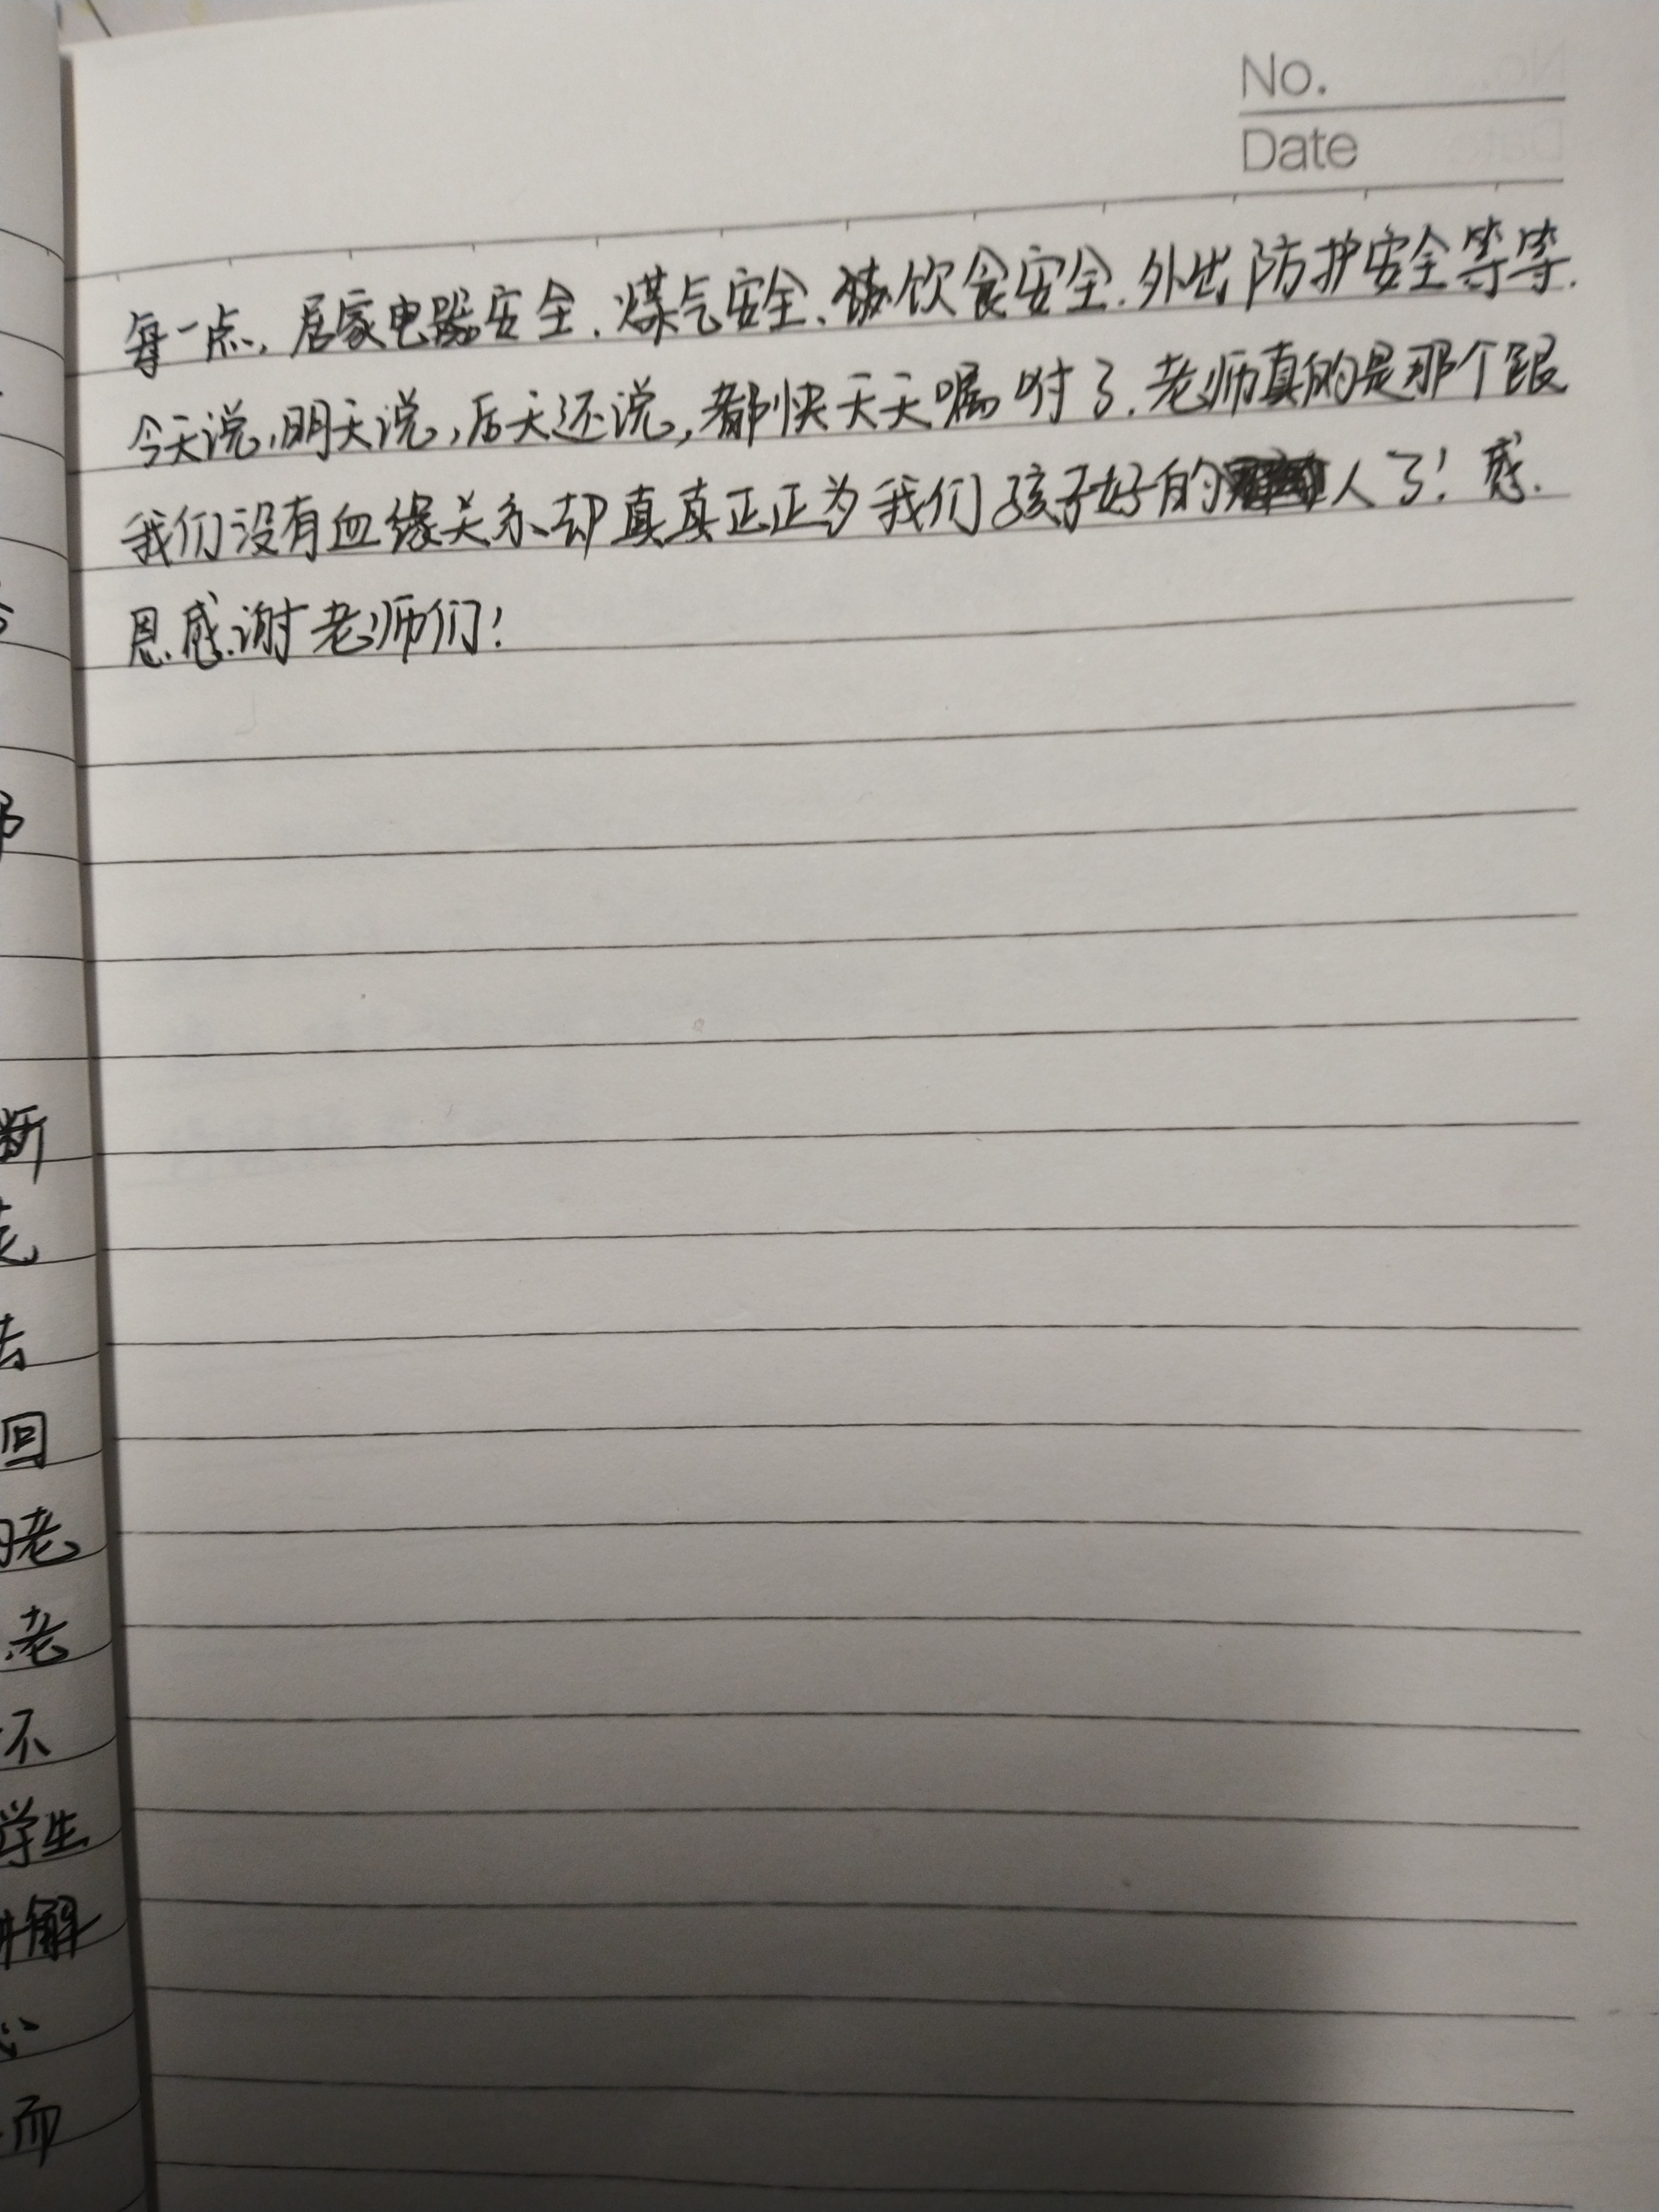 No.
Date
每一点，居家电器安全、煤气安全、饮食安全、外出防护安全等等.
今天说，明天说，后天还说，都快天天嘱咐了.老师真的是那个跟
我们没有血缘关系却真真正正为我们孩子好的人了！感
恩感谢老师们！
断
去
回
老
老
不
学生
讲解
而